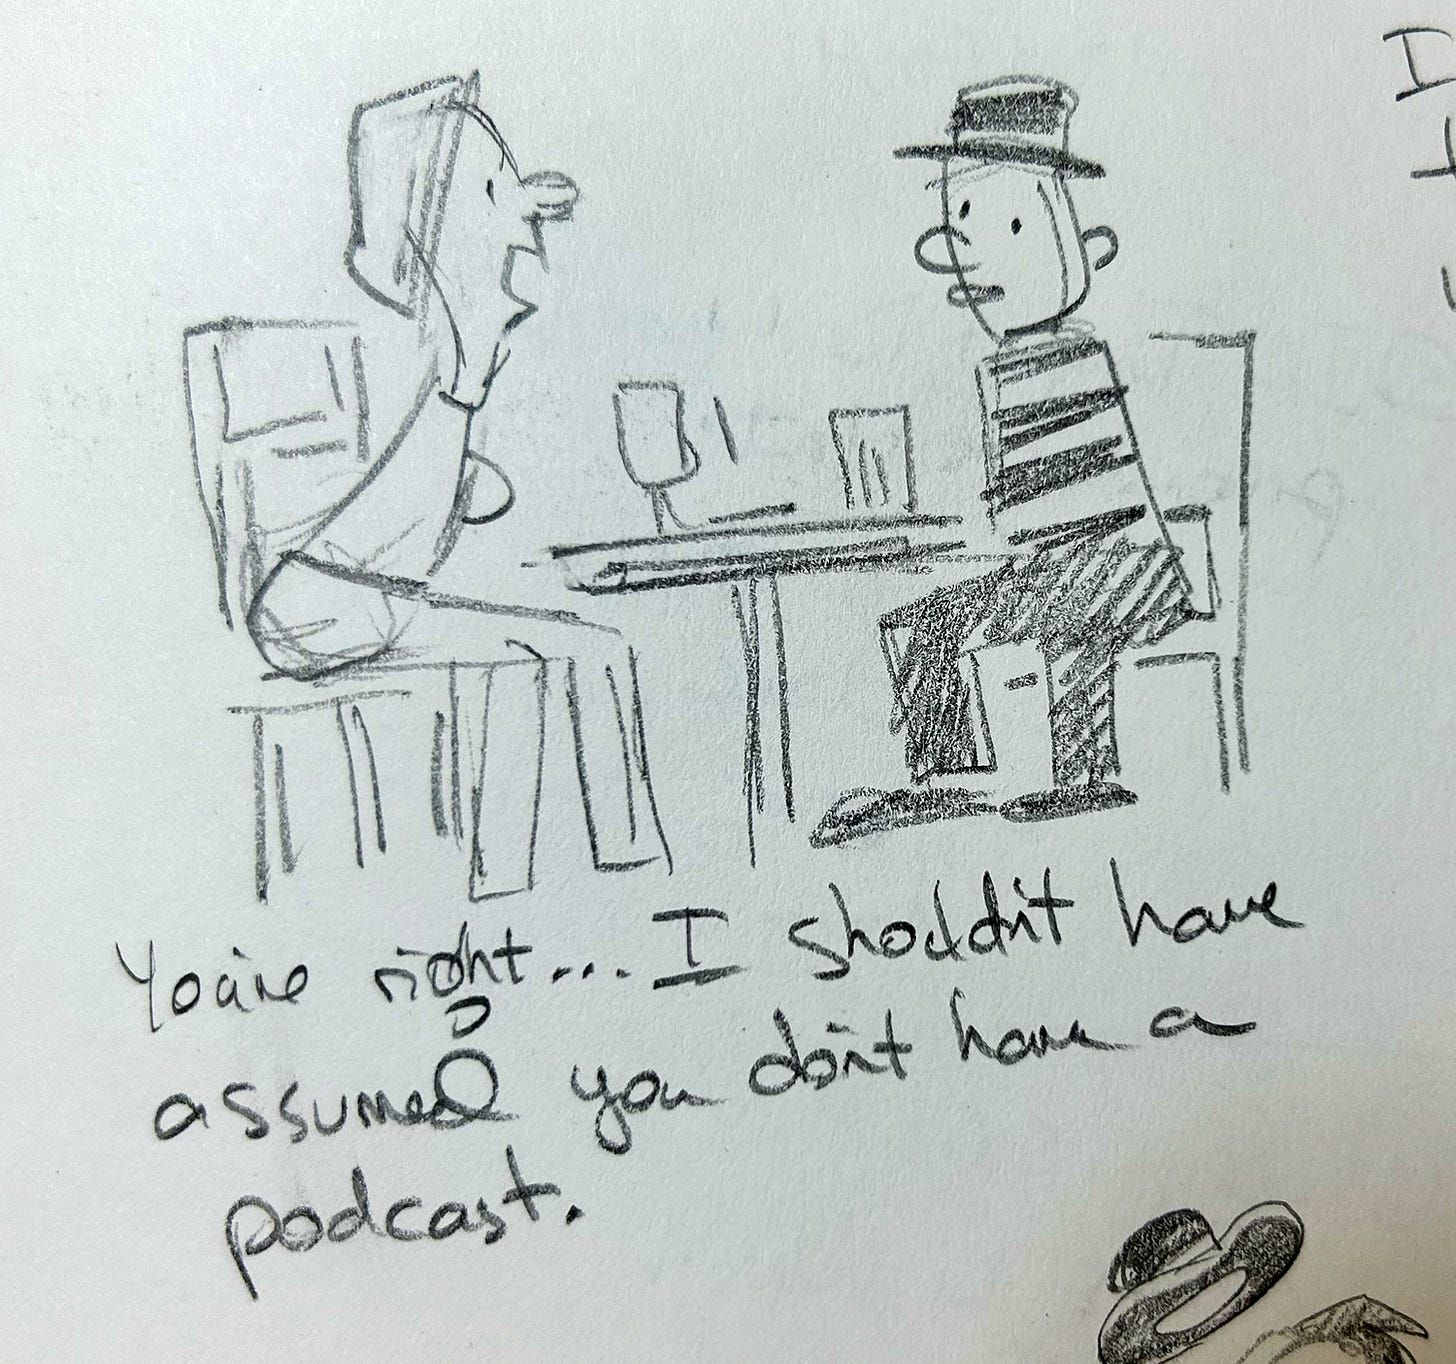 You're right... I shouldn't have
assumed you don't have a
podcast.